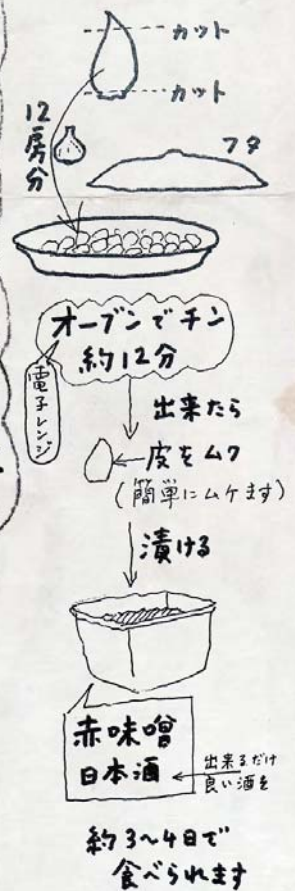 カット
カット
12房分
フタ
オーブンでチン
約12分
電子レンジ
出来たら
皮をムク
(簡単にムケます)
漬ける
赤味噌
日本酒
出来るだけ
良い酒を
約3〜4日で
食べられます